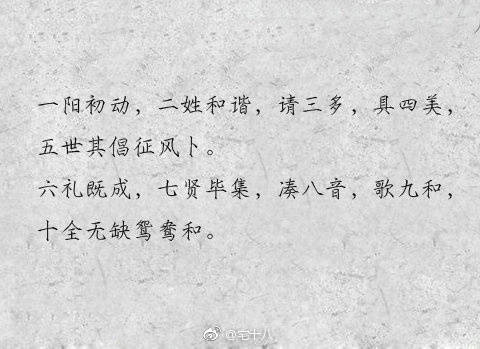 一阳初动，二姓和谐，请三多，具四美，
五世其倡征风卜。
六礼既成，七贤毕集，凑八音，歌九和，
十全无缺鸳鸯和。
@宅十八